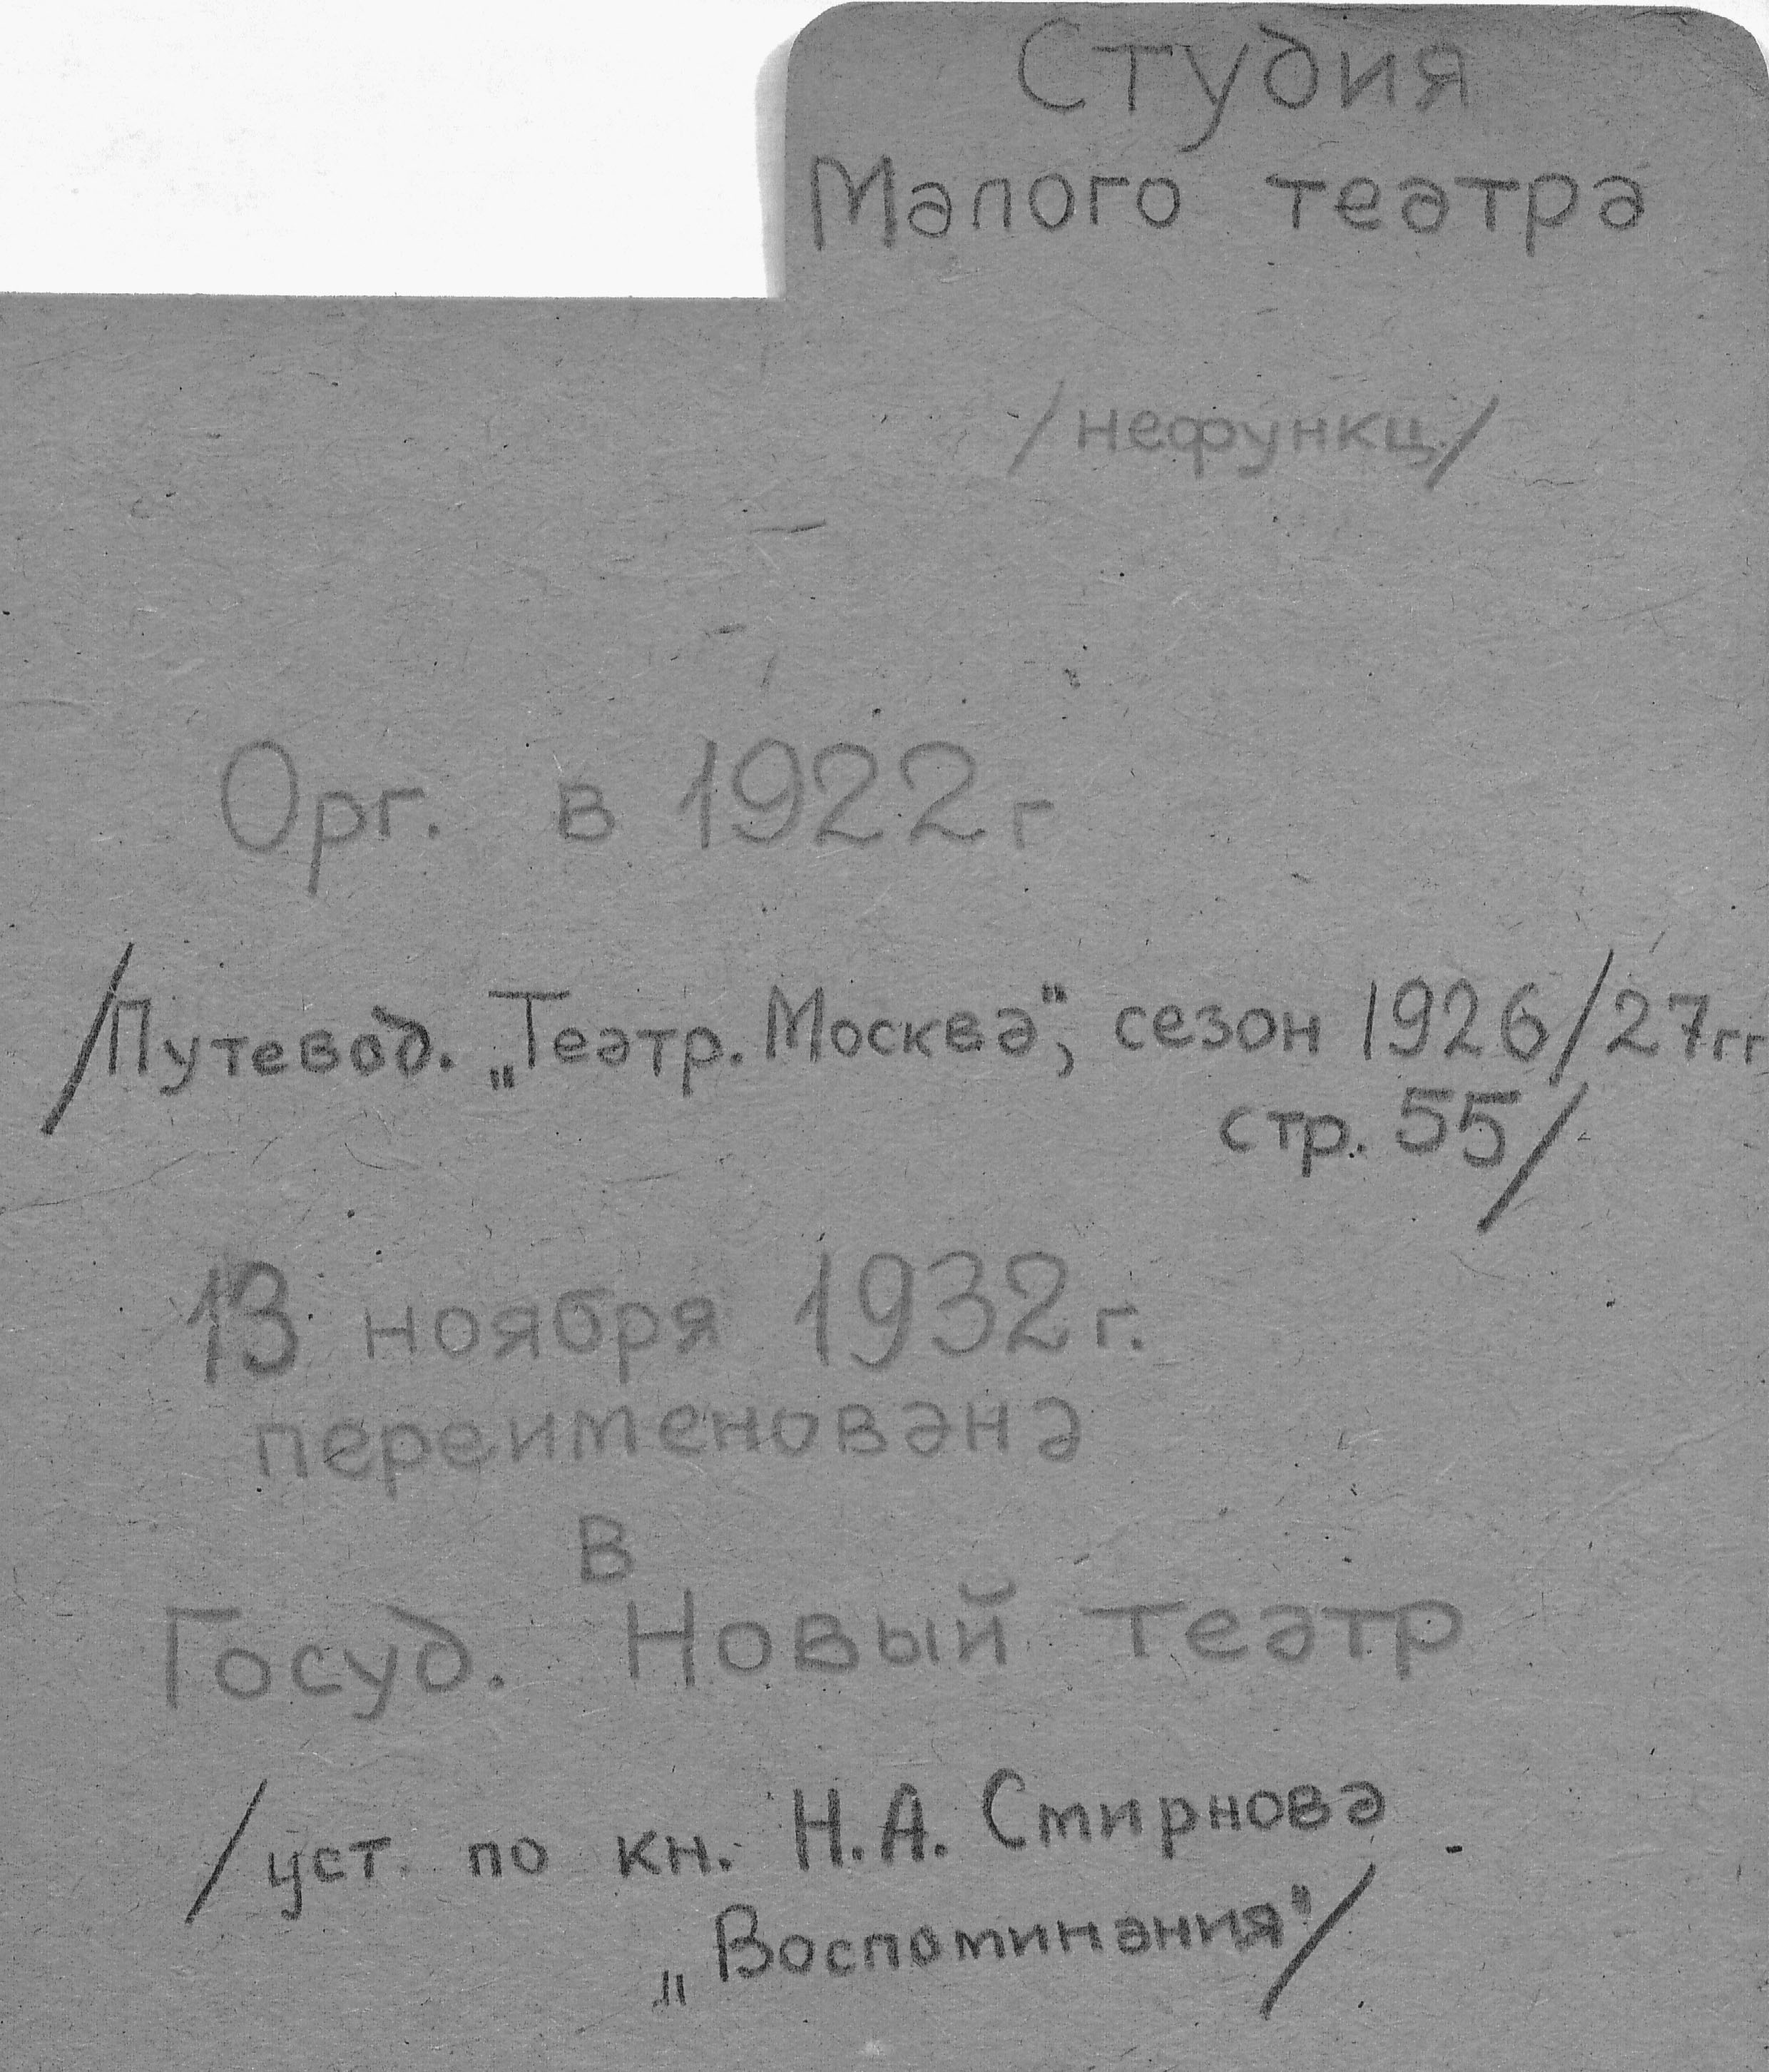 Студия
Малого театра
/нефункц./
Орг. в 1922 г
/Путевод. „Театр. Москва", сезон 1926/27 гг
стр. 55/
13 ноября 1932 г.
переименована
в
Госуд. Новый театр
/уст. по кн. Н.А. Смирнова
„Воспоминания"/